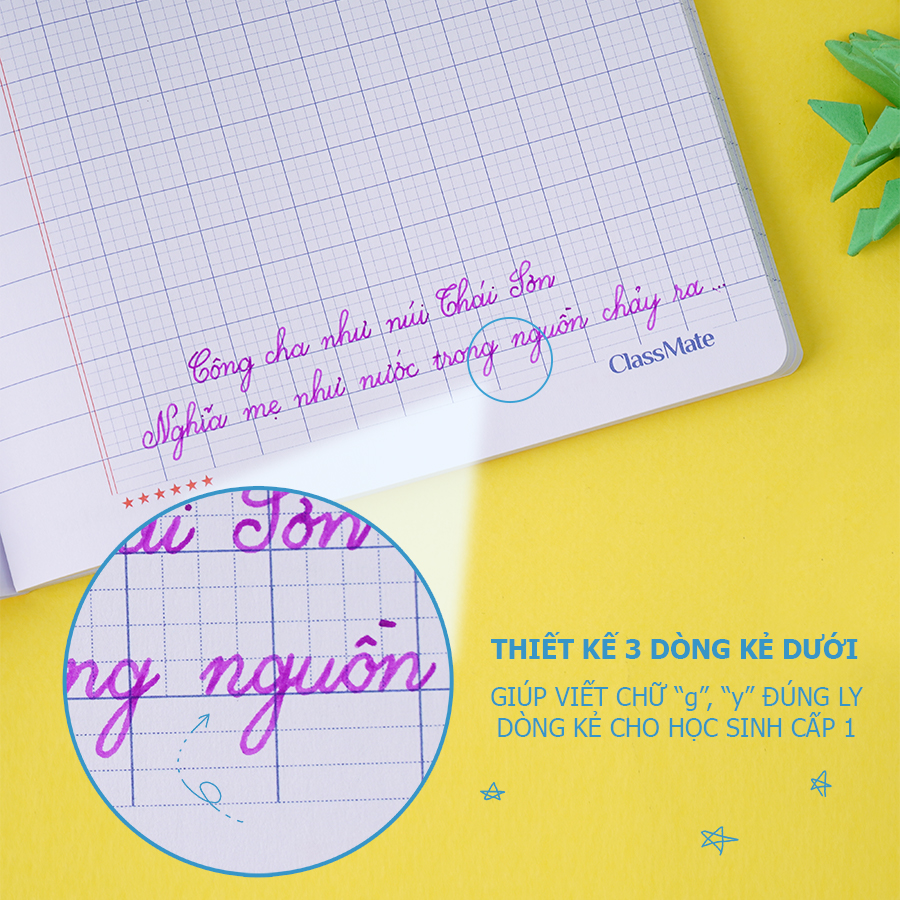 Công cha như núi Thái Sơn
Nghĩa mẹ như nước trong nguồn chảy ra...
ClassMate
ái Sơn
ng nguồn
THIẾT KẾ 3 DÒNG KẺ DƯỚI
GIÚP VIẾT CHỮ “g”, “y” ĐÚNG LY
DÒNG KẺ CHO HỌC SINH CẤP 1